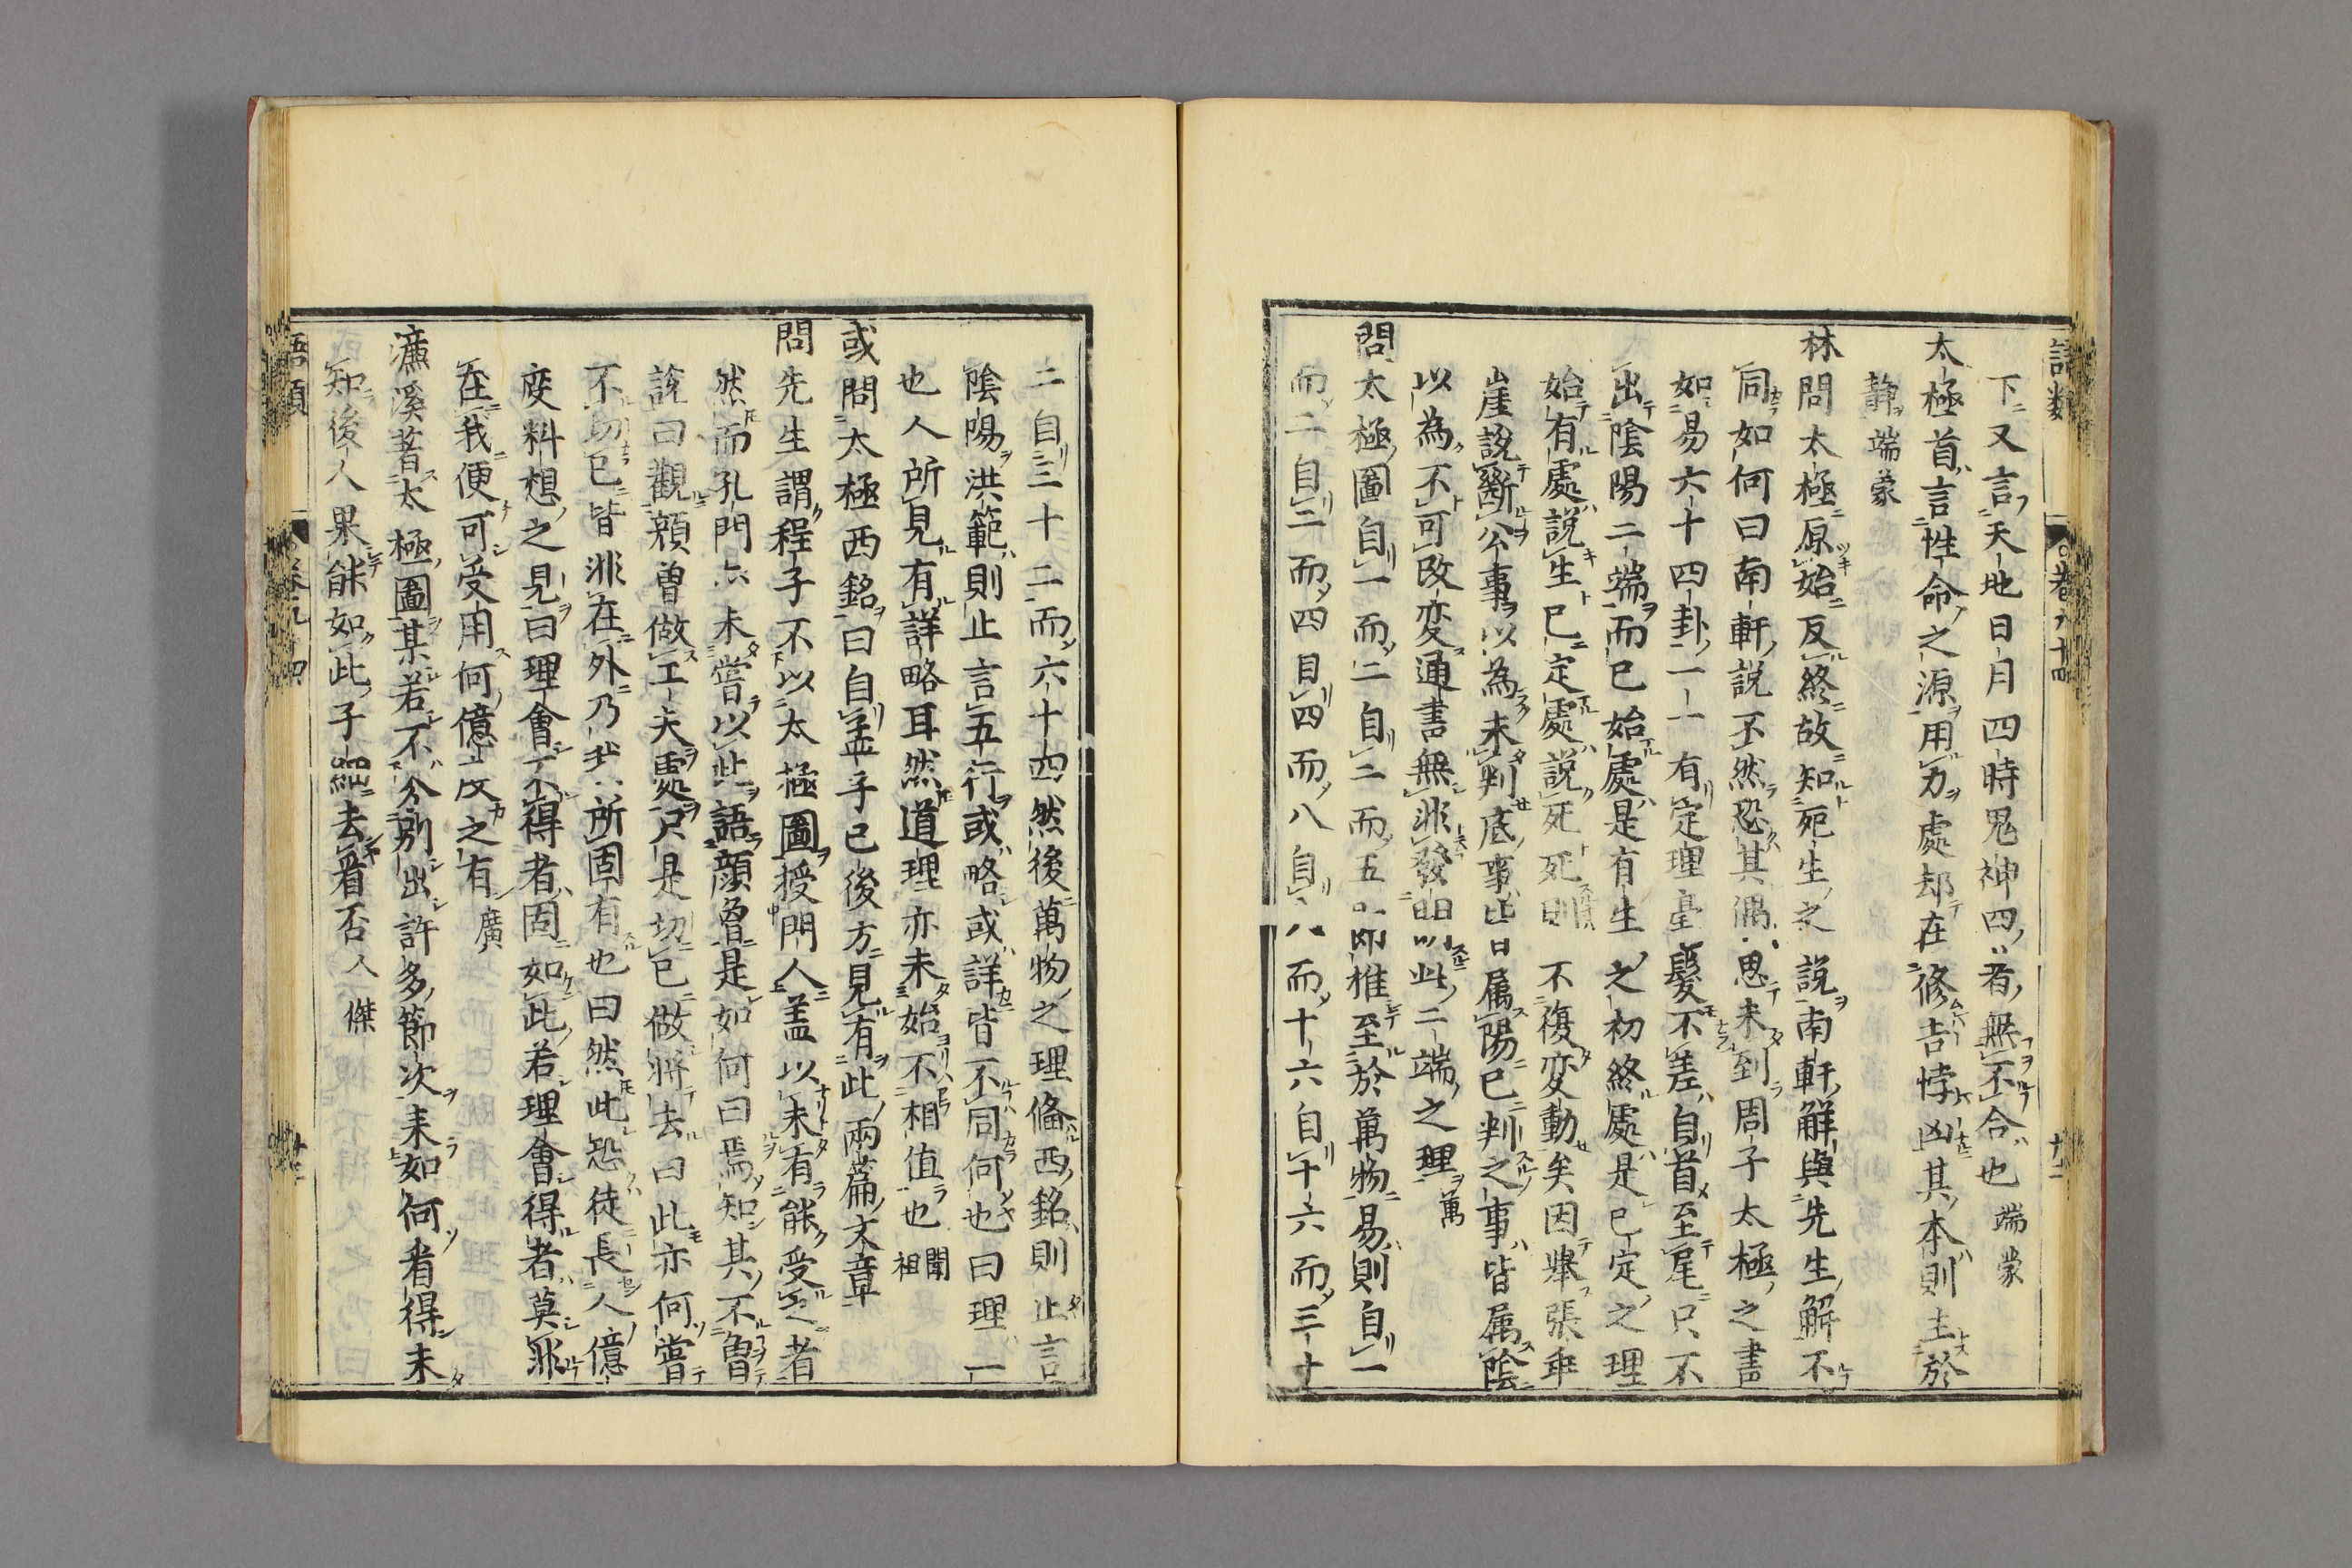 語類 卷九十四 十二
下又言天地日月四時鬼神四者無不合也端蒙
太極首言性命之源用力處却在修吉悖凶其本則主於
靜端蒙
林問太極原始反終故知死生之說南軒解與先生解不
同如何曰南軒說不然恐其偶思未到周子太極之書
如易六十四卦一一有定理毫髮不差自首至尾只不
出陰陽二端而已始處是有生之初終處是已定之理
始有處說生已定處說死死則不復変動矣因舉張乖
崖說斷公事以為未判底事皆属陽已判之事皆属陰
以為不可改変通書無非發明此二端之理萬
問太極圖自一而二自二而五即推至於萬物易則自一
而二自二而四自四而八自八而十六自十六而三十
二自三十二而六十四然後萬物之理偹西銘則止言
陰陽洪範則止言五行或略或詳皆不同何也曰理一
也人所見有詳略耳然道理亦未始不相值也閎祖
或問太極西銘曰自孟子已後方見有此兩篇文章
問先生謂程子不以太極圖授門人盖以未有能受之者
然而孔門亦未嘗以此語顏曾是如何曰焉知其不曾
說曰觀顏曾做工夫處只是切已做將去曰此亦何嘗
不切已皆非在外乃我所固有也曰然此恐徒長人億
度料想之見曰理會不得者固如此若理會得者莫非
在我便可受用何億度之有廣
濂溪著太極圖某若不分別出許多節次来如何看得未
知後人果能如此子細去看否人傑
語類 卷九十四 十三